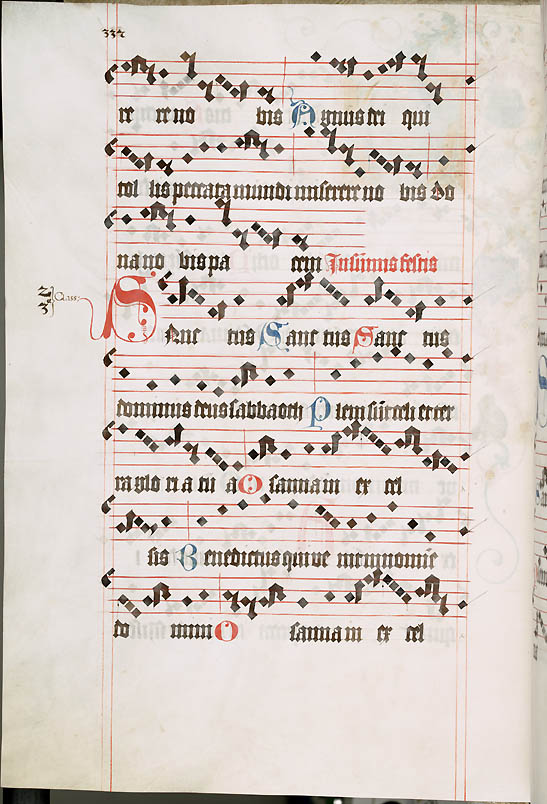 332
re re no bis Agnus dei qui
tol lis peccata mundi miserere no bis Do
na no bis pa cem In summis festis
2 3 Class:
Sanc tus Sanc tus Sanc tus
dominus deus sabbaoth Pleni sūt celi et ter
ra glo ri a tu a Osanna in ex cel
sis Benedictus qui ve nit in nomīe
do mini Osanna in ex cel